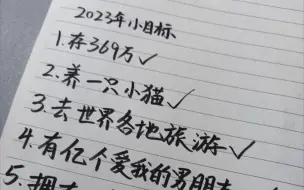 2023年小目标
1.存369万✓
2.养一只小猫✓
3.去世界各地旅游✓
4.有亿个爱我的男朋友
5.拥有